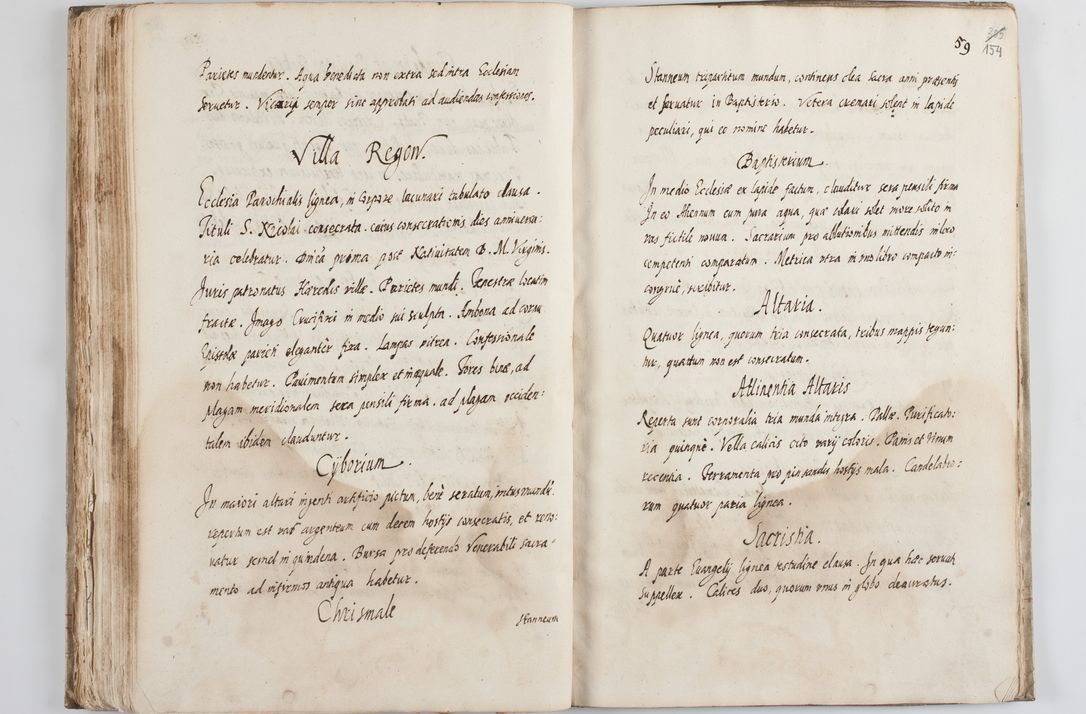 Parietes mundentur. Aqua benedicta non extra sed intra Ecclesiam
seruetur. Vicarij semper sint approbati ad audiendas confessiones.
Villa Regow.
Ecclesia Parochialis lignea, in corpore lacunari tabulato clausa.
Tituli S. Nicolai consecrata. cuius consecrationis dies anniuersa:
ria celebratur. Dnica prima post Natiuitatem B. M. Virginis.
Juris patronatus Hæredis villæ. Parietes mundi. Fenestræ locatim
fractæ. Imago Crucifixi in medio sui sculpta. Ambona ad cornu
Epistolæ parieti eleganter fixa. Lampas vitrea. Confessionale
non habetur. Pauimentum simplex et inæquale. Fores binæ, ad
plagam meridionalem sera pensili firma. ad plagam occiden:
talem ibidem clauduntur.
Cÿborium.
In maiori altari ingenti artificio pictum, benè seratum, intus mundũ.
repertum est vas argenteum cum decem hostijs consecratis, et reno:
uatur semel in quindena. Bursa pro deferendo Venerabili Sacra=
mento ad infirmos antiqua habetur.
Chrismale
stanneum
59
154
Stanneum tripartitum mundum, continens olea sacra anni præsentis
et seruatur in Baptisterio. Vetera cremari solent in lapide
peculiari, qui eo nomine habetur.
Baptisterium.
In medio Ecclesiæ ex lapide factum, clauditur sera pensili firma
In eo Ahennum cum pura aqua, quæ solari solet more solito in
vas fictile nouum. Sacrarium pro ablutionibus mittendis in loco
competenti comparatum. Metrica vtra in vno libro compacto in:
congruè, scribitur.
Altaria.
Quatuor lignea, quorum tria consecrata, tribus mappis tegun:
tur, quartum non est consecratum.
Attinentia Altaris
Reperta sunt corporalia tria munda integra. Pallæ. Purificato:
ria quinque. Vella calicis octo varij coloris. Panis et Vinum
recentia. Ferramenta pro pinsendis hostijs mala. Candelabro:
rum quatuor paria lignea.
Sacristia.
A parte Euangelij lignea testudine clausa. In qua hæc seruatur
suppellex. Calices duo, quorum vnus in globo deauratus.